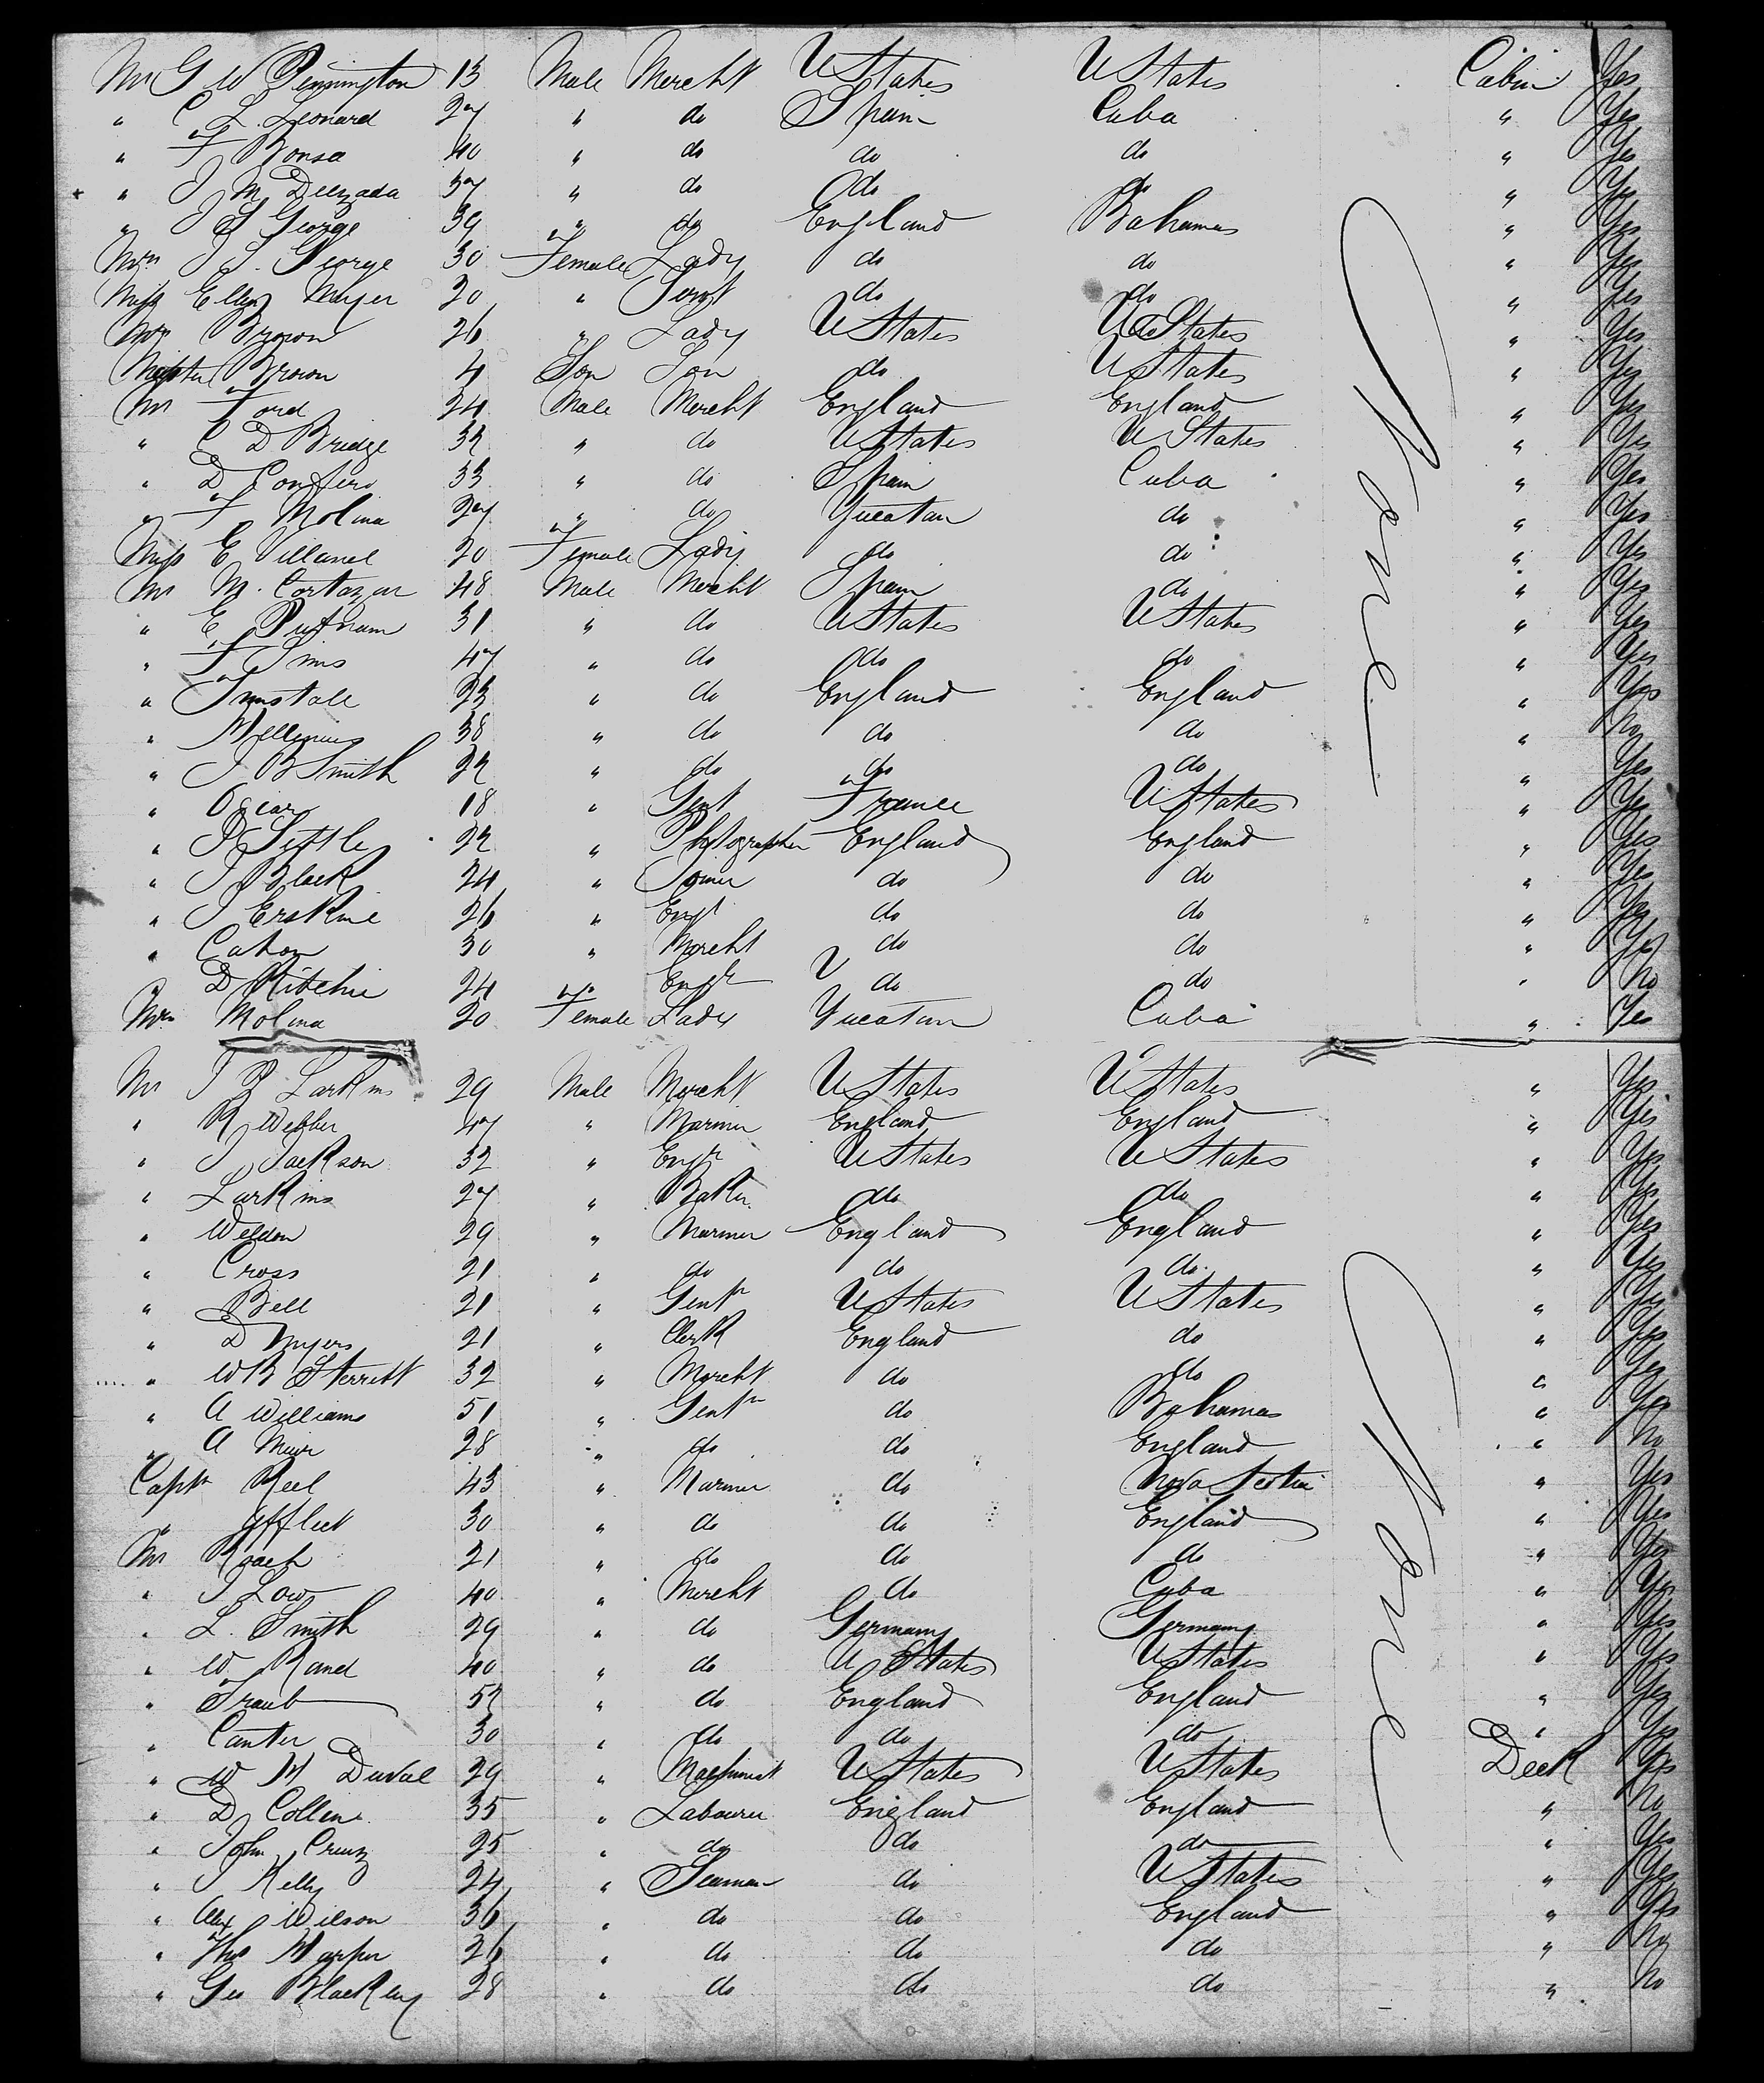 Mr G W Pennington 13 Male Mercht U States U States Cabin Yes
" C L. Leonard 27 " do Spain Cuba " Yes
" F Bonsa 40 " do do do " Yes
" J M Delzada 37 " do do do " Yes
" J S George 39 " do England Bahamas " Yes
Mrs J S. George 30 Female Lady do do " Yes
Miss Ellen Meyer 20 " Servt do do " Yes
Mrs Brown 26 " Lady U States U States " Yes
Master Brown 4 Son Son do U States " Yes
Mr Ford 24 Male Mercht England England " Yes
" C D Bridge 32 " do U States U States " Yes
" D 33 " do Spain Cuba " Yes
" F Molina 27 " do Yucatan do " Yes
Miss E Villanel 20 Female Lady do do " Yes
Mr M. Cortazar 48 Male Mercht Spain do " Yes
" E Putnam 31 " do U States U States " Yes
" F Sims 47 " do do do " Yes
" Tunstall 23 " do England England " Yes
" 38 " do do do " No
" J B Smith 22 " do do do " Yes
" Oscar 18 " Gent France U States " Yes
" P Settle 22 " Photographer England England " Yes
" J Black 24 " Joiner do do " Yes
" J Erskine 26 " Engr do do " Yes
" Cahon 30 " Mercht do do " Yes
" D Ritchie 24 Engr do do " No
Mrs Molina 20 Female Lady Yucatan Cuba " Yes
None
Mr J R Larkins 29 Male Mercht U States U States " Yes
" R Webber 47 " Mariner England England " Yes
" J Jackson 32 " Engr U States U States " Yes
" Larkins 27 " Baker do do " Yes
" Weldon 29 " Mariner England England " Yes
" Cross 21 " do do do " Yes
" Bell 21 " Gentn U States U States " Yes
" D Myers 21 " Clerk England do " Yes
" W B Sterrett 32 " Mercht do do " Yes
" A Williams 51 " Gentn do Bahamas " Yes
" A Muir 28 " do do England " No
Captn Reel 43 " Mariner do Nova Scotia " Yes
" Afflect 30 " do do England " Yes
Mr Roach 21 " do do do " Yes
" J Low 40 " Mercht do Cuba " Yes
" L. Smith 29 " do Germany Germany " Yes
" W Rand 40 " do U States U States " Yes
" Traub 52 " do England England " Yes
" Canter 30 " do do do " Yes
" W H Duval 29 " Machinist U States U States Deck Yes
" D Collins 35 " Labourer England England " No
" John Creuz 25 " do do do " Yes
" J Kelly 24 " Seaman do U States " Yes
" Alex Wilson 36 " do do England " Yes
" Thos Harper 26 " do do do " No
" Geo Blackley 28 " do do do " No
None